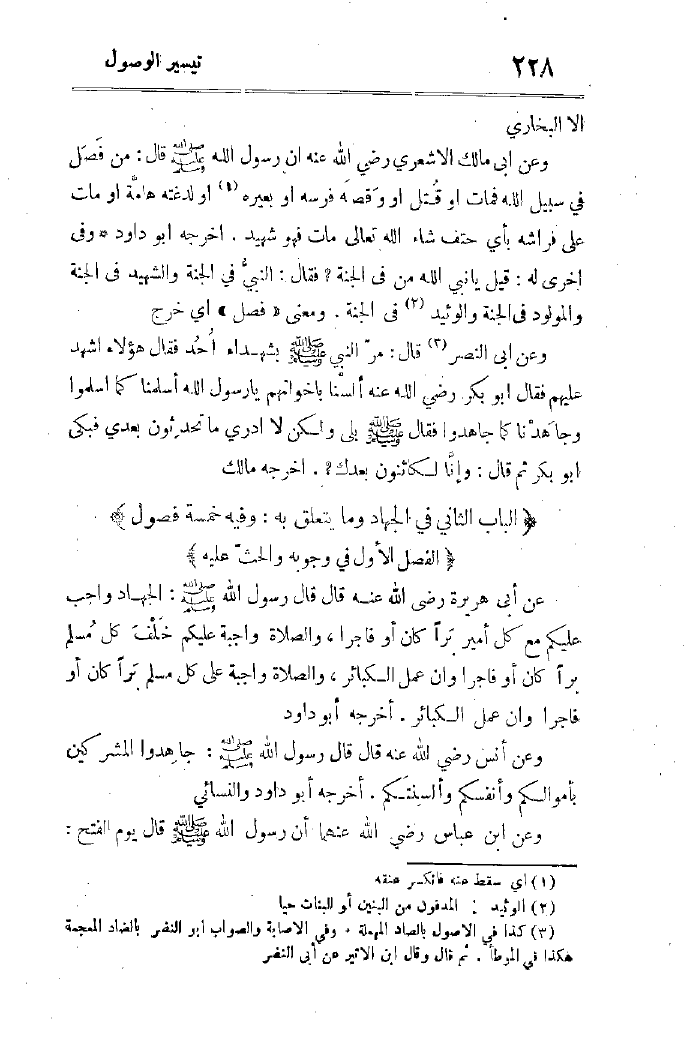 ٢٢٨ تيسير الوصول
الا البخاري
وعن ابى مالك الاشعري رضي الله عنه ان رسول الله ﷺ قال: من فَصَل
في سبيل الله فمات او قُتل او وَقصَه فرسه او بعيره (١) او لدغته هامَّة او مات
على فراشه بأي حتف شاء الله تعالى مات فهو شهيد . اخرجه ابو داود « وفى
اخرى له : قيل يانبي الله من فى الجنة ؟ فقال : النبيُّ في الجنة والشهيد فى الجنة
والمولود فى الجنة والوئيد (٢) فى الجنة . ومعنى « فصل » اي خرج
وعن ابى النصر (٣) قال : مرّ النبي ﷺ بشهداء أُحُد فقال هؤلاء اشهد
عليهم فقال ابو بكر رضي الله عنه ألسْنا باخوانهم يارسول الله أسلمنا كما اسلموا
وجاهدْنا كما جاهدوا فقال ﷺ بلى ولكن لا ادري ما تحدِثون بعدي فبكى
ابو بكر ثم قال : وإنَّا لكائنون بعدك ؟ . اخرجه مالك
﴿ الباب الثاني في الجهاد وما يتعلق به : وفيه خمسة فصول ﴾
﴿ الفصل الأول في وجوبه والحثّ عليه ﴾
عن أبى هريرة رضى الله عنه قال قال رسول الله ﷺ : الجهاد واجب
عليكم مع كل أمير بَراً كان أو فاجرا ، والصلاة واجبة عليكم خَلْفَ كل مُسلم
براً كان أو فاجرا وان عمل الكبائر ، والصلاة واجبة على كل مسلم بَراً كان أو
فاجرا وان عمل الكبائر . أخرجه أبو داود
وعن أنس رضي الله عنه قال قال رسول الله ﷺ : جاهِدوا المشركين
بأموالكم وأنفسكم وألسنتكم . أخرجه أبو داود والنسائي
وعن ابن عباس رضي الله عنهما أن رسول الله ﷺ قال يوم الفتح :
(١) اي سقط عنه فانكسر عنقه
(٢) الوئيد : المدفون من البنين أو البنات حيا
(٣) كذا في الاصول بالصاد المهملة . وفي الاصابة والصواب ابو النضر بالضاد المعجمة
هكذا في الموطأ . ثم قال وقال ابن الاثير عن أبى النضر